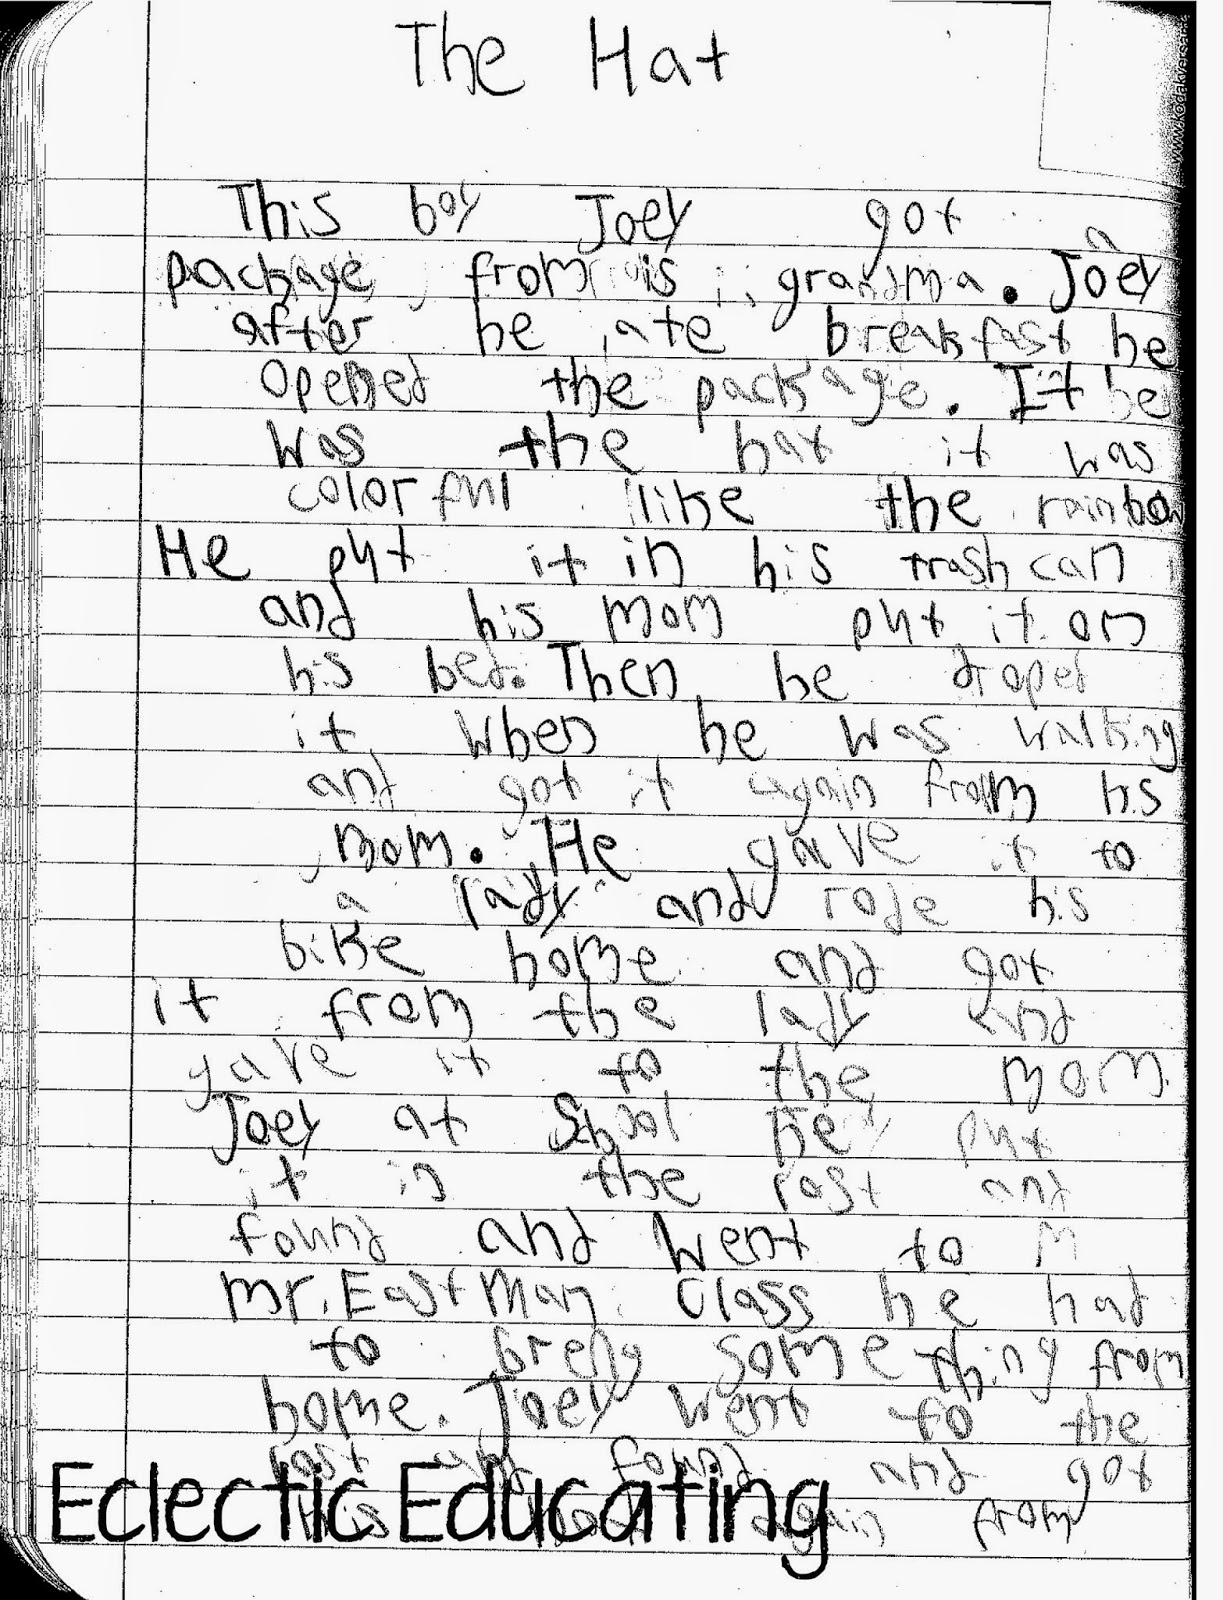 The Hat
www.kodakversa
This boy Joey got a
package from is grandma. Joey
after he ate breakfast he
opened the package. It be
was the hat it was
colorful like the rainbow
He put it in his trash can
and his mom put it on
his bed. Then he droped
it when he was walking
and got it again from his
mom. He gave it to
a lady and rode his
bike home and got
it from the lady and
gave it to the mom
Joey at Shool he put
it in the lost and
found and went to M
mr. EastMan class he had
to breng something from
home. Joey went to the
lost and found and got
Eclectic Educating
again from